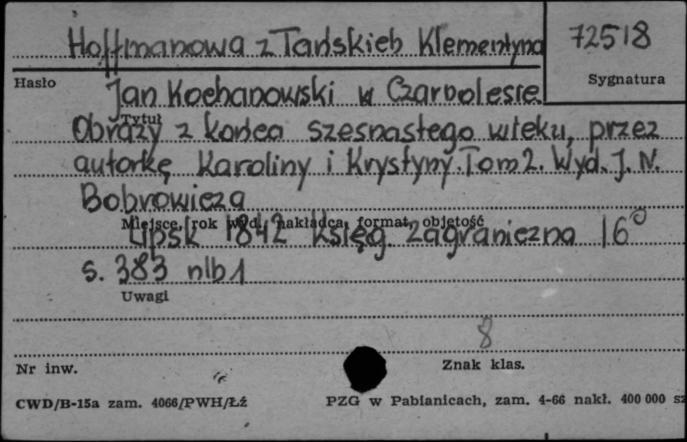 Hoffmanowa z Tańskich Klementyna
72518
Hasło
Sygnatura
Jan Kochanowski w Czarnolesie.
Tytuł
Obrazy z końca szesnastego wieku, przez
autorkę Karoliny i Krystyny. Tom 2. Wyd. J. N.
Bobrowicza
Miejsce, rok wyd., nakładca, format, objętość
Lipsk 1842 Księg. Zagraniczna 16°
s. 383 nlb 1
Uwagi
8
Nr inw.
Znak klas.
CWD/B-15a zam. 4066/PWH/Łź
PZG w Pabianicach, zam. 4-66 nakł. 400 000 sz